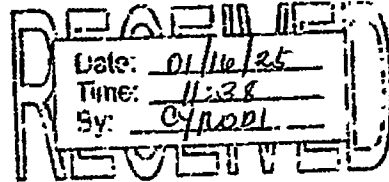 RECEIVED
Date: 01/16/25
Time: 11:38
By: